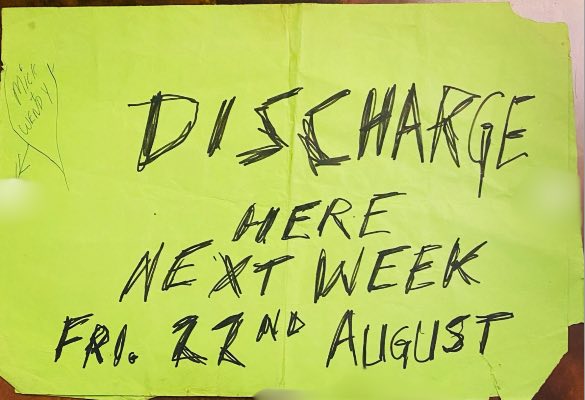 MICK
+
WENDY
DISCHARGE
HERE
NEXT WEEK
FRI. 22ND AUGUST